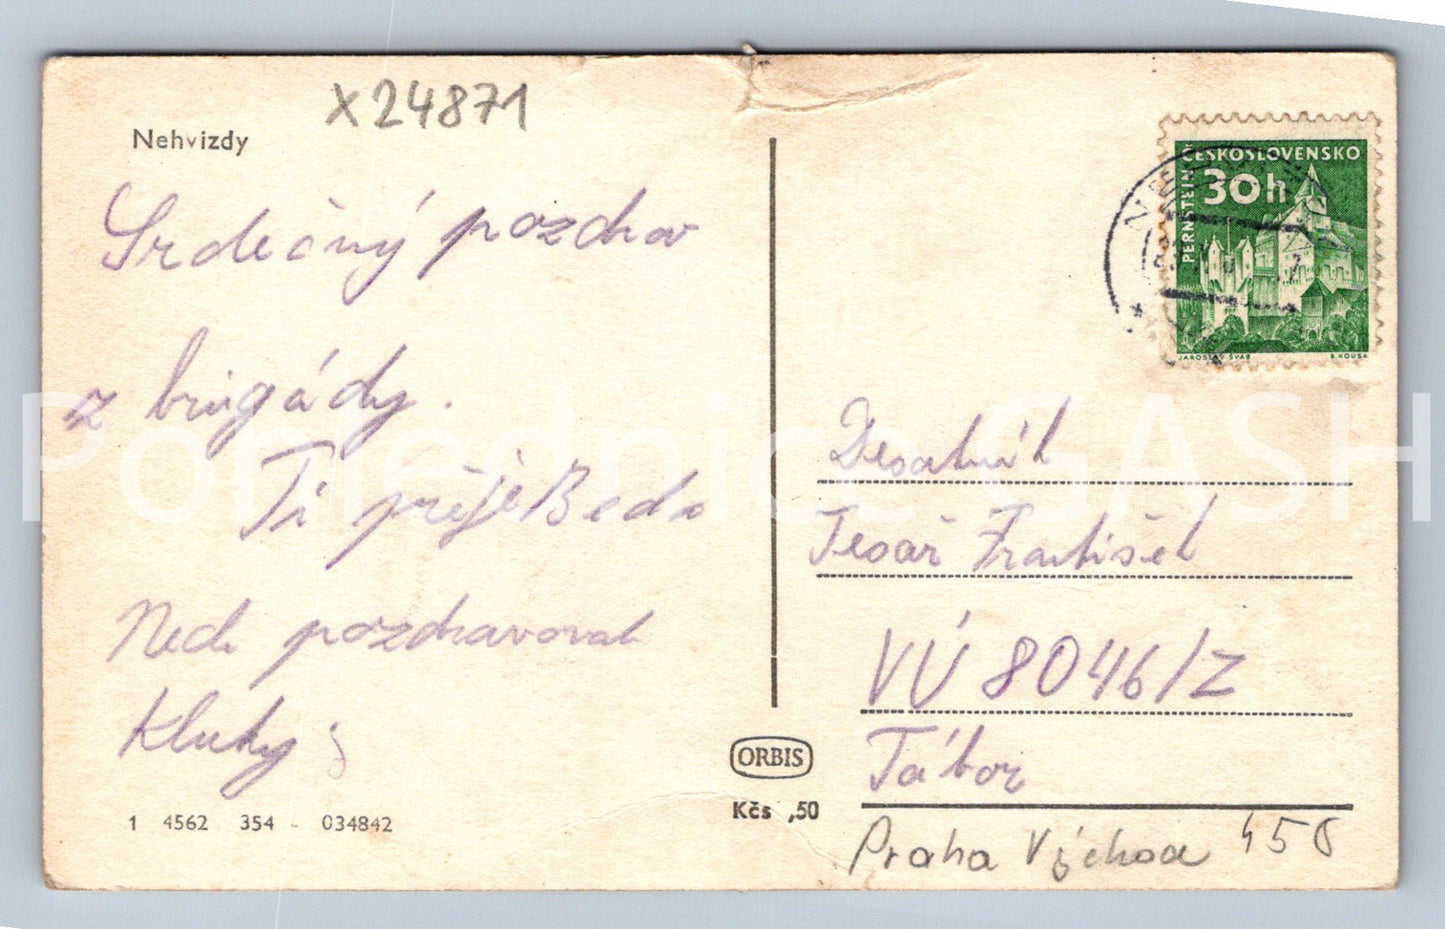 X24871
Nehvizdy
Srdečný pozdrav
z brigády.
Ti přeje Beda
Nech pozdravovat
Kluky
1 4562 354 - 034842
ČESKOSLOVENSKO
30h
PERNŠTEJN
JAROSLAV ŠVÁB
B. HOUSA
Desatník
Tesař František
VÚ 8046/Z
Tábor
ORBIS
Kčs ,50
Praha Východ 450
Pohlednice GASH